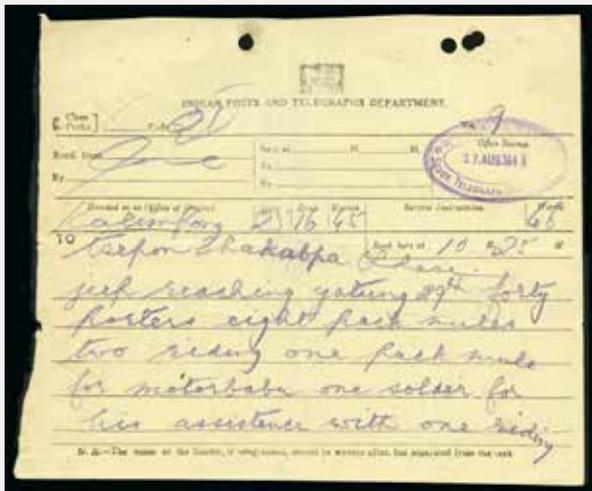 INDIAN POSTS AND TELEGRAPHS DEPARTMENT.
Class
Prefix
Code
No. 9
Office Stamp
By
By
Handed in at (Office of Origin)
Date
Hour
Words
Service Instructions
Words
Kalimpong 16 45
TO
Recd. here at 10 H. 25 M
Tsepon Shakabpa Lhasa
jeep reaching yatung 29th forty
porters eight pack mules
two riding one pack mule
for motorbabu one solder for
his assistence with one riding
N. B.—The name of the Sender, if telegraphed, should be written after, but separated from the text